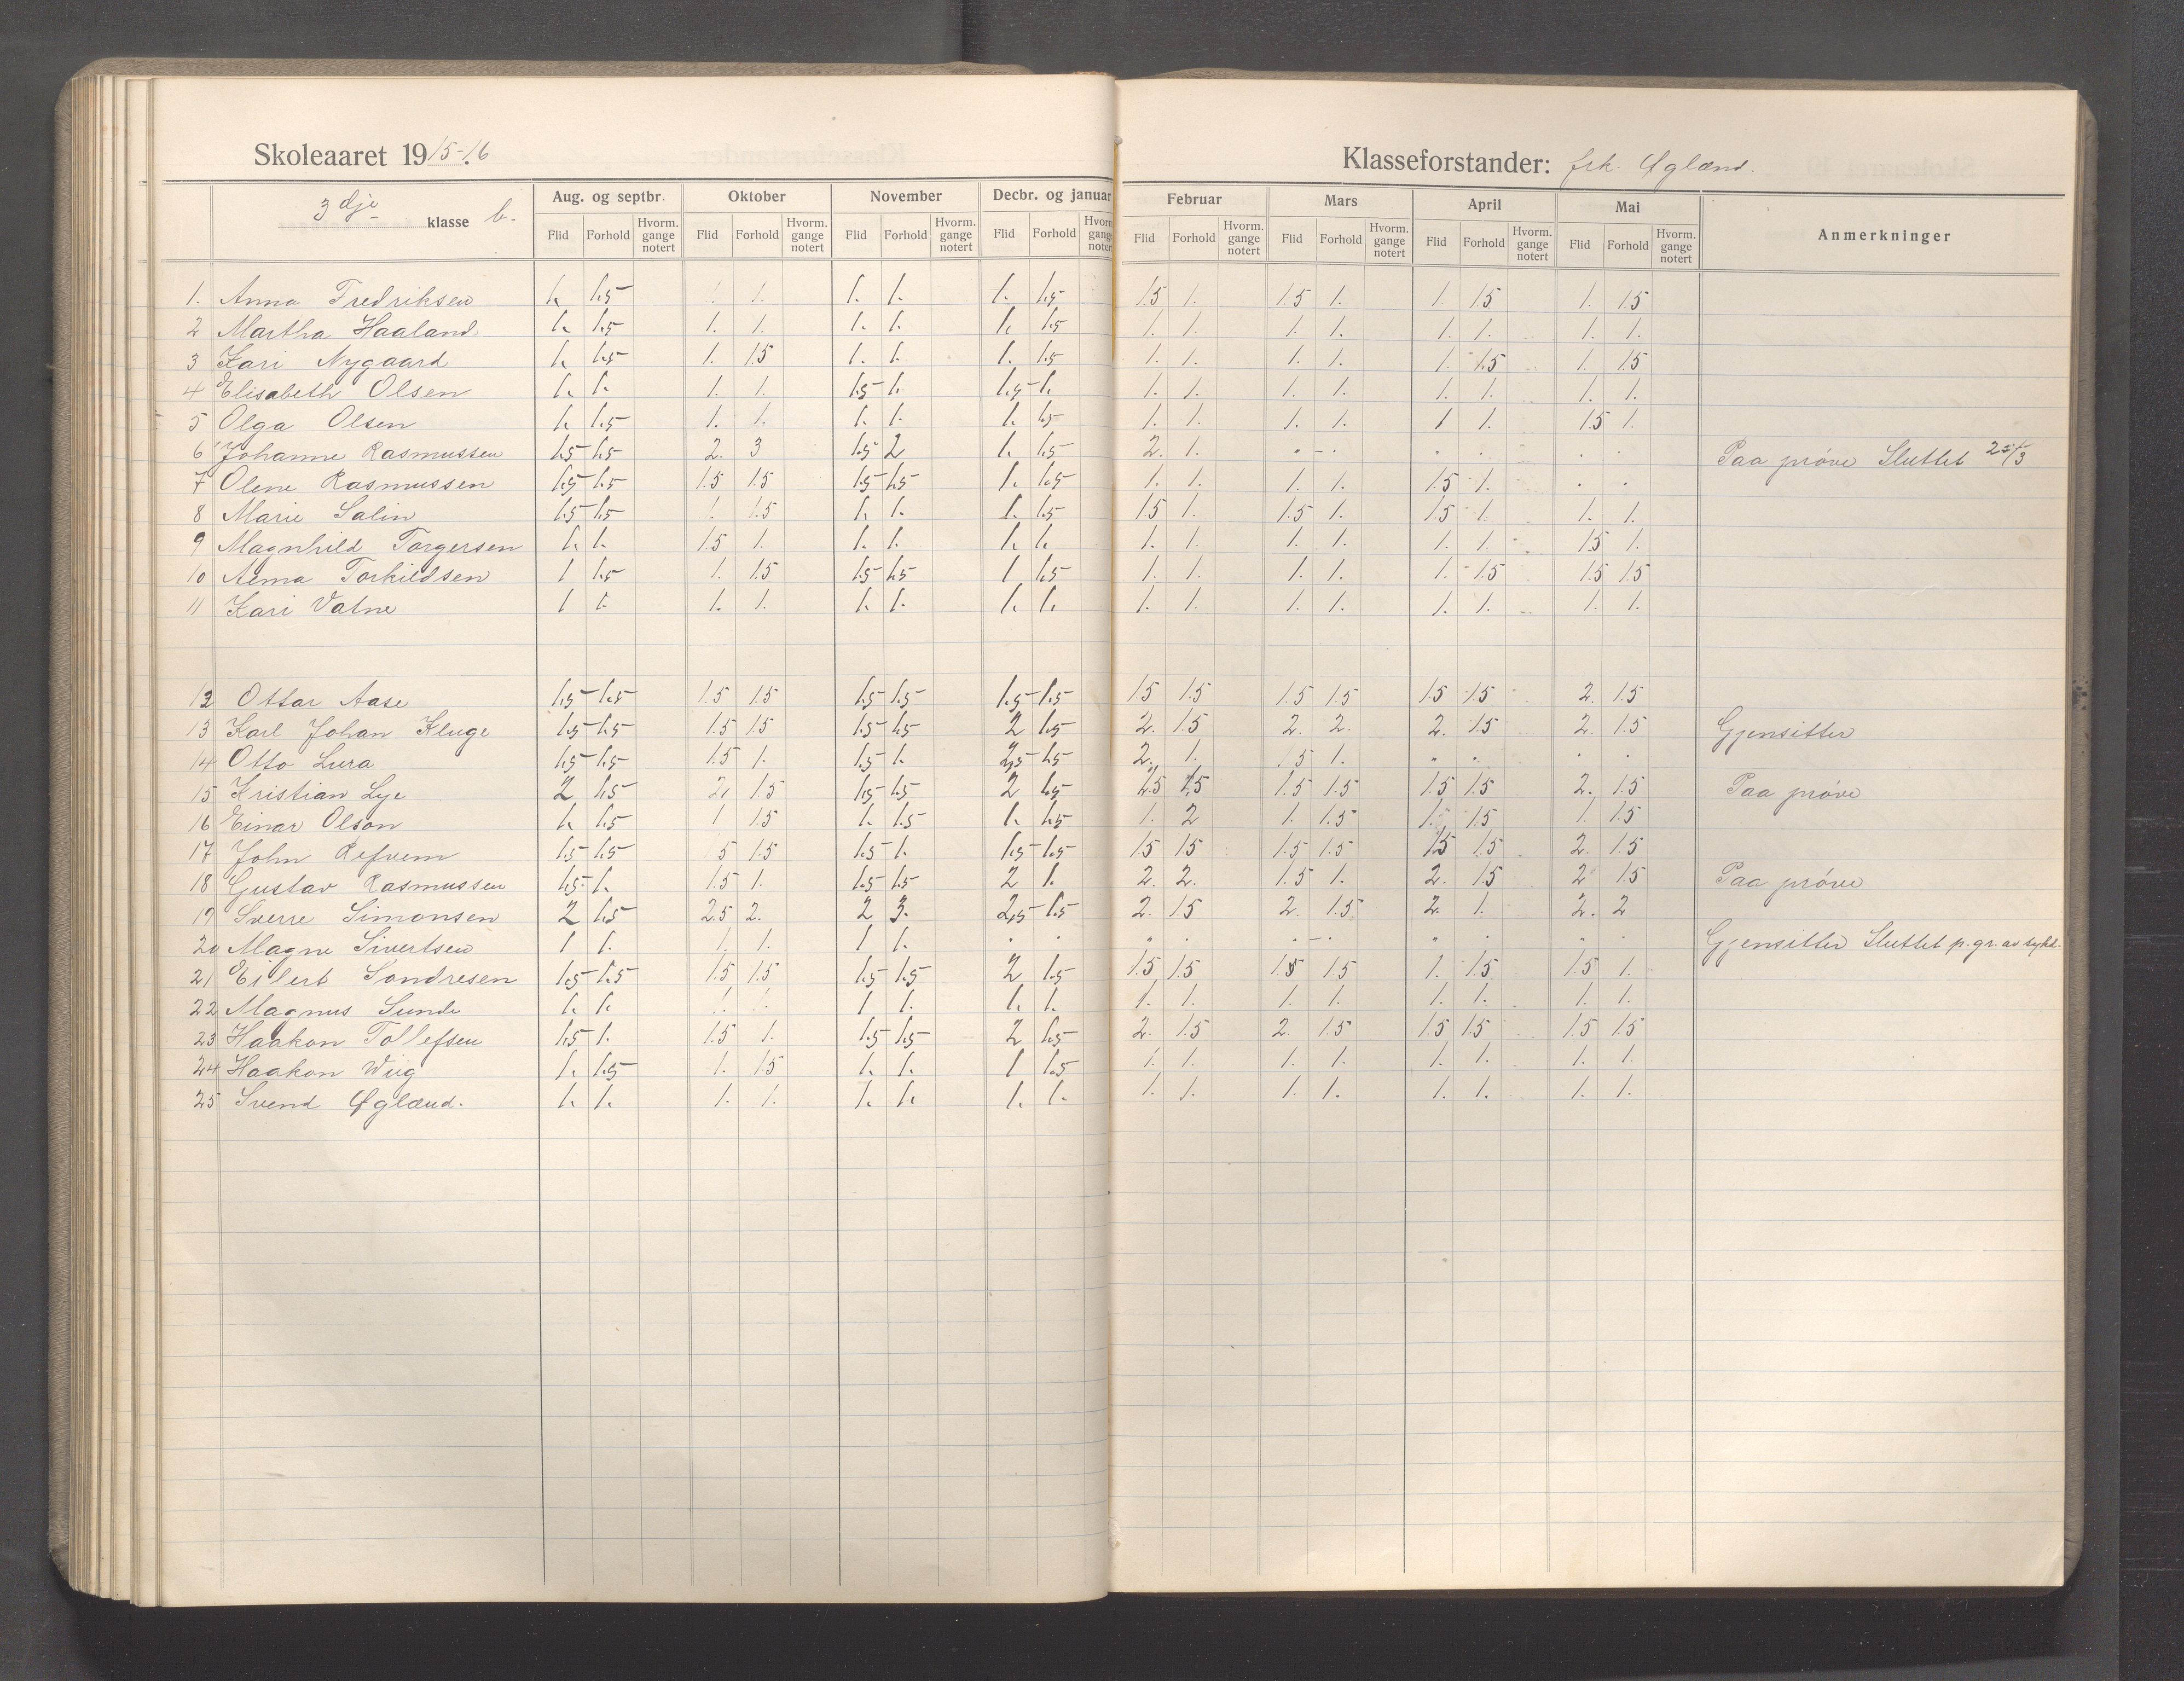 Skoleaaret 1915-16. Klasseforstander: frk. Øgland.
3 dje klasse b. Aug. og septbr. Oktober November Decbr. og januar Februar Mars April Mai Anmerkninger
Flid Forhold Hvorm. gange notert Flid Forhold Hvorm. gange notert Flid Forhold Hvorm. gange notert Flid Forhold Flid Forhold Hvorm. gange notert Flid Forhold Hvorm. gange notert Flid Forhold Hvorm. gange notert Flid Forhold Hvorm. gange notert
1. Anna Fredriksen 1. 1.5 1. 1. 1. 1. 1. 1.5 1.5 1. 1.5 1. 1. 1.5 1. 1.5
2 Martha Haaland 1. 1.5 1. 1. 1. 1. 1. 1.5 1. 1. 1. 1. 1. 1. 1. 1.
3 Kari Nygaard 1. 1.5 1. 1.5 1. 1. 1. 1.5 1. 1. 1. 1. 1. 1.5 1. 1.5
4 Elisabeth Olsen 1. 1. 1. 1. 1.5 1. 1.5 1. 1. 1. 1. 1. 1. 1. 1. 1.
5 Olga Olsen 1. 1.5 1. 1. 1. 1. 1. 1.5 1. 1. 1. 1. 1 1. 1.5 1.
6 Johanne Rasmussen 1.5 1.5 2. 3 1.5 2 1. 1.5 2. 1. Paa prøve Sluttet 25/3
7 Olene Rasmussen 1.5 1.5 1.5 1.5 1.5 1.5 1. 1.5 1. 1. 1. 1. 1.5 1.
8 Marie Salin 1.5 1.5 1. 1.5 1. 1. 1. 1.5 1.5 1. 1.5 1. 1.5 1. 1. 1.
9 Magnhild Torgersen 1. 1. 1.5 1. 1. 1. 1. 1. 1. 1. 1. 1. 1. 1. 1.5 1.
10 Alma Torkildsen 1 1.5 1. 1.5 1.5 1.5 1 1.5 1. 1. 1. 1. 1. 1.5 1.5 1.5
11 Kari Vatne 1 1. 1. 1. 1. 1. 1. 1. 1. 1. 1. 1. 1. 1. 1. 1.
12 Ottar Aase 1.5 1.5 1.5 1.5 1.5 1.5 1.5 1.5 1.5 1.5 1.5 1.5 1.5 1.5 2. 1.5
13 Karl Johan Kluge 1.5 1.5 1.5 1.5 1.5 1.5 2 1.5 2. 1.5 2. 2. 2. 1.5 2. 1.5 Gjensitter
14 Otto Lura 1.5 1.5 1.5 1. 1.5 1. 2,5 1.5 2. 1. 1.5 1.
15 Kristian Lye 2 1.5 2. 1.5 1.5 1.5 2 1.5 1.5 1.5 1.5 1.5 1.5 1.5 2. 1.5 Paa prøve
16 Einar Olson 1. 1.5 1 1.5 1. 1.5 1. 1.5 1. 2 1. 1.5 1. 1.5 1. 1.5
17 John Refvem 1.5 1.5 5 1.5 1.5 1. 1.5 1.5 1.5 1.5 1.5 1.5 1.5 1.5 2. 1.5
18 Gustav Rasmussen 1.5 1. 1.5 1. 1.5 1.5 2 1. 2. 2. 1.5 1. 2. 1.5 2 1.5 Paa prøve
19 Sverre Simonsen 2 1.5 2.5 2. 2 3. 2,5 1.5 2. 1.5 2. 1.5 2. 1. 2. 2
20 Magne Sivertsen 1 1. 1. 1. 1 1. Gjensitter Sluttet p. gr. av sykd.
21 Eilert Sondresen 1.5 1.5 1.5 1.5 1.5 1.5 2 1.5 1.5 1.5 1.5 1.5 1. 1.5 1.5 1.
22 Magnus Sunde 1. 1. 1 1. 1. 1. 1. 1. 1. 1. 1. 1. 1. 1.
23 Haakon Tollefsen 1.5 1. 1.5 1. 1.5 1.5 2 1.5 2. 1.5 2. 1.5 1.5 1.5 1.5 1.5
24 Haakon Wiig 1. 1.5 1. 1.5 1. 1. 1 1.5 1. 1. 1. 1. 1. 1. 1. 1.
25 Svend Øglænd. 1. 1. 1. 1. 1. 1. 1. 1. 1. 1. 1. 1. 1. 1. 1. 1.